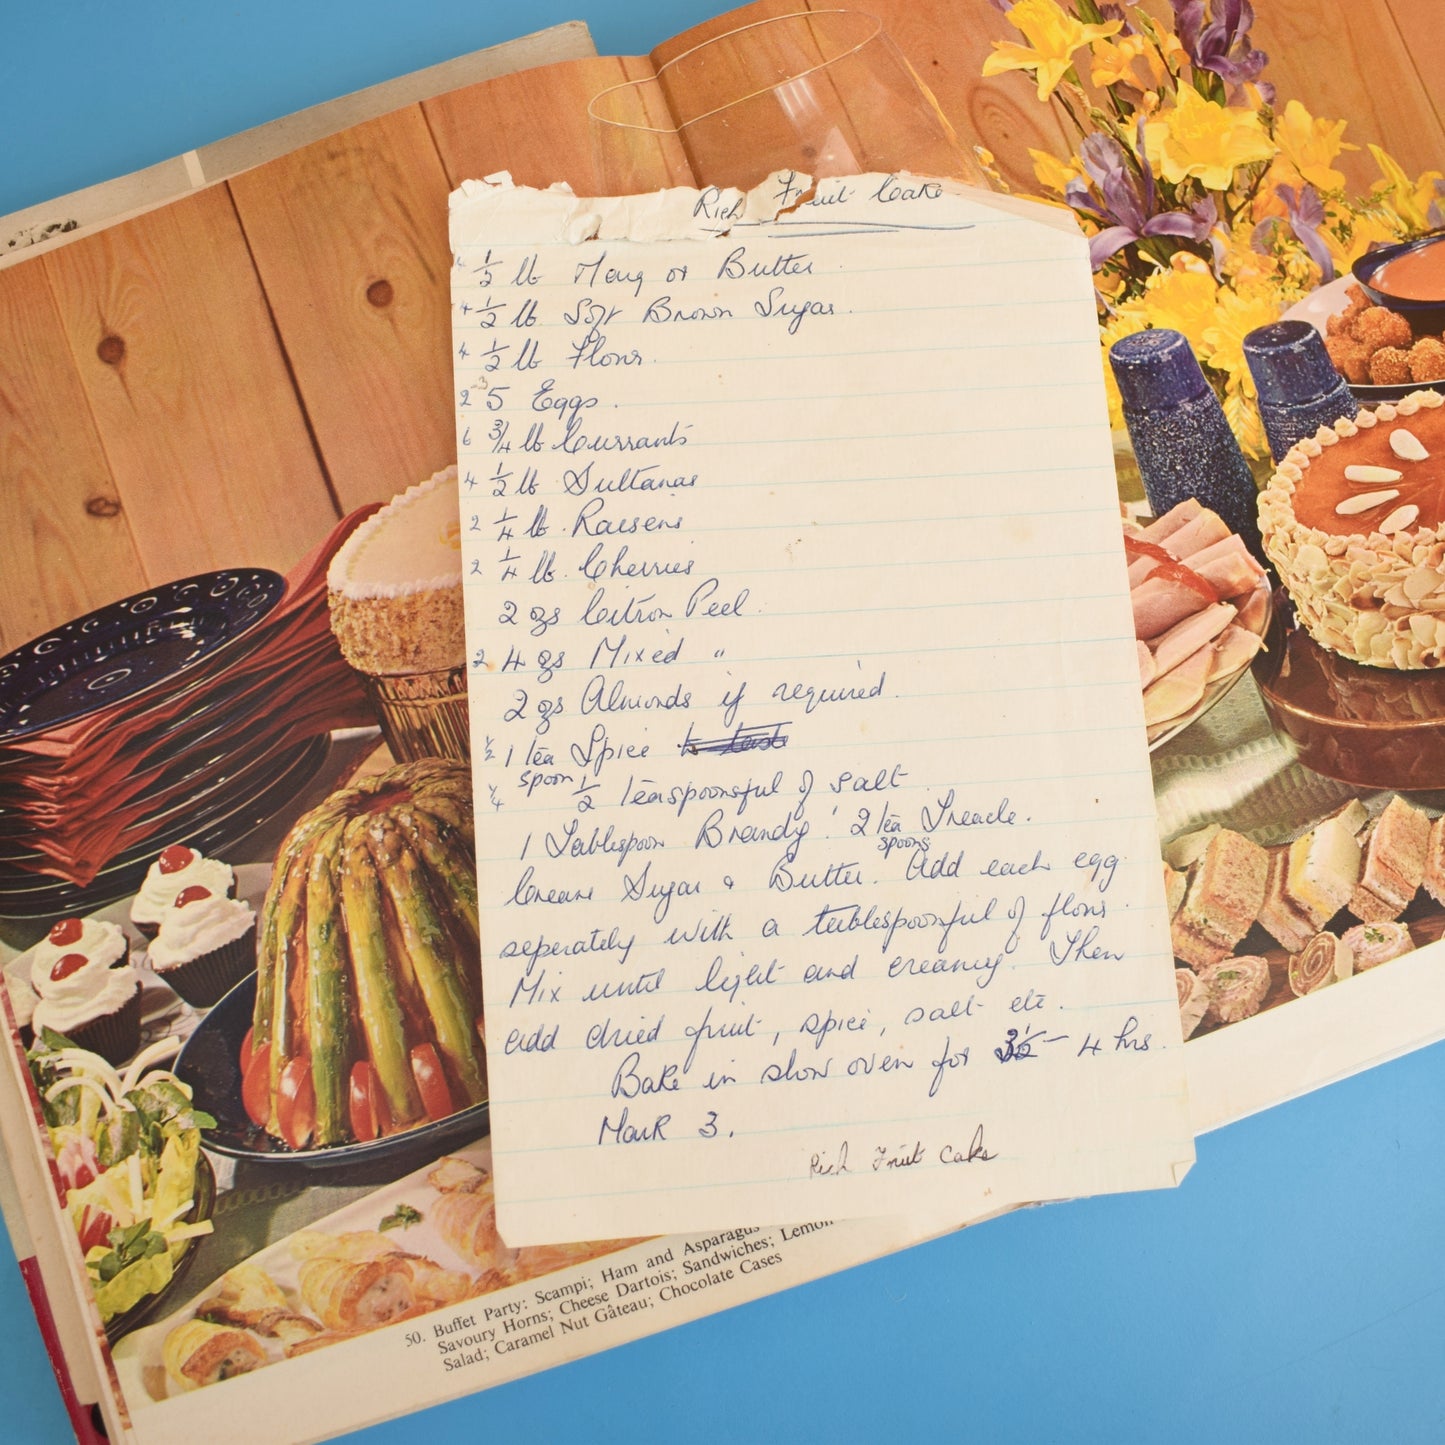 Rich Fruit Cake
4 1/2 lb Marg or Butter.
4 1/2 lb Soft Brown Sugar.
4 1/2 lb Flour.
2-3 5 Eggs.
6 3/4 lb Currants
4 1/2 lb Sultanas
2 1/4 lb. Raisens
2 1/4 lb. Cherries
2 ozs Citron Peel.
2 4 ozs Mixed "
2 ozs Almonds if required.
1/2 1 tea Spice
spoon
1/4 1/2 teaspoonsful of salt
1 Tablespoon Brandy. 2 tea Treacle.
spoons
Cream Sugar & Butter. Add each egg
seperately with a tablespoonful of flour.
Mix until light and creamy. Then
add dried fruit, spice, salt etc.
Bake in slow oven for 3 1/2 - 4 hrs.
Mark 3.
Rich Fruit Cake
50. Buffet Party: Scampi; Ham and Asparagus
Savoury Horns; Cheese Dartois; Sandwiches; Lemon
Salad; Caramel Nut Gâteau; Chocolate Cases